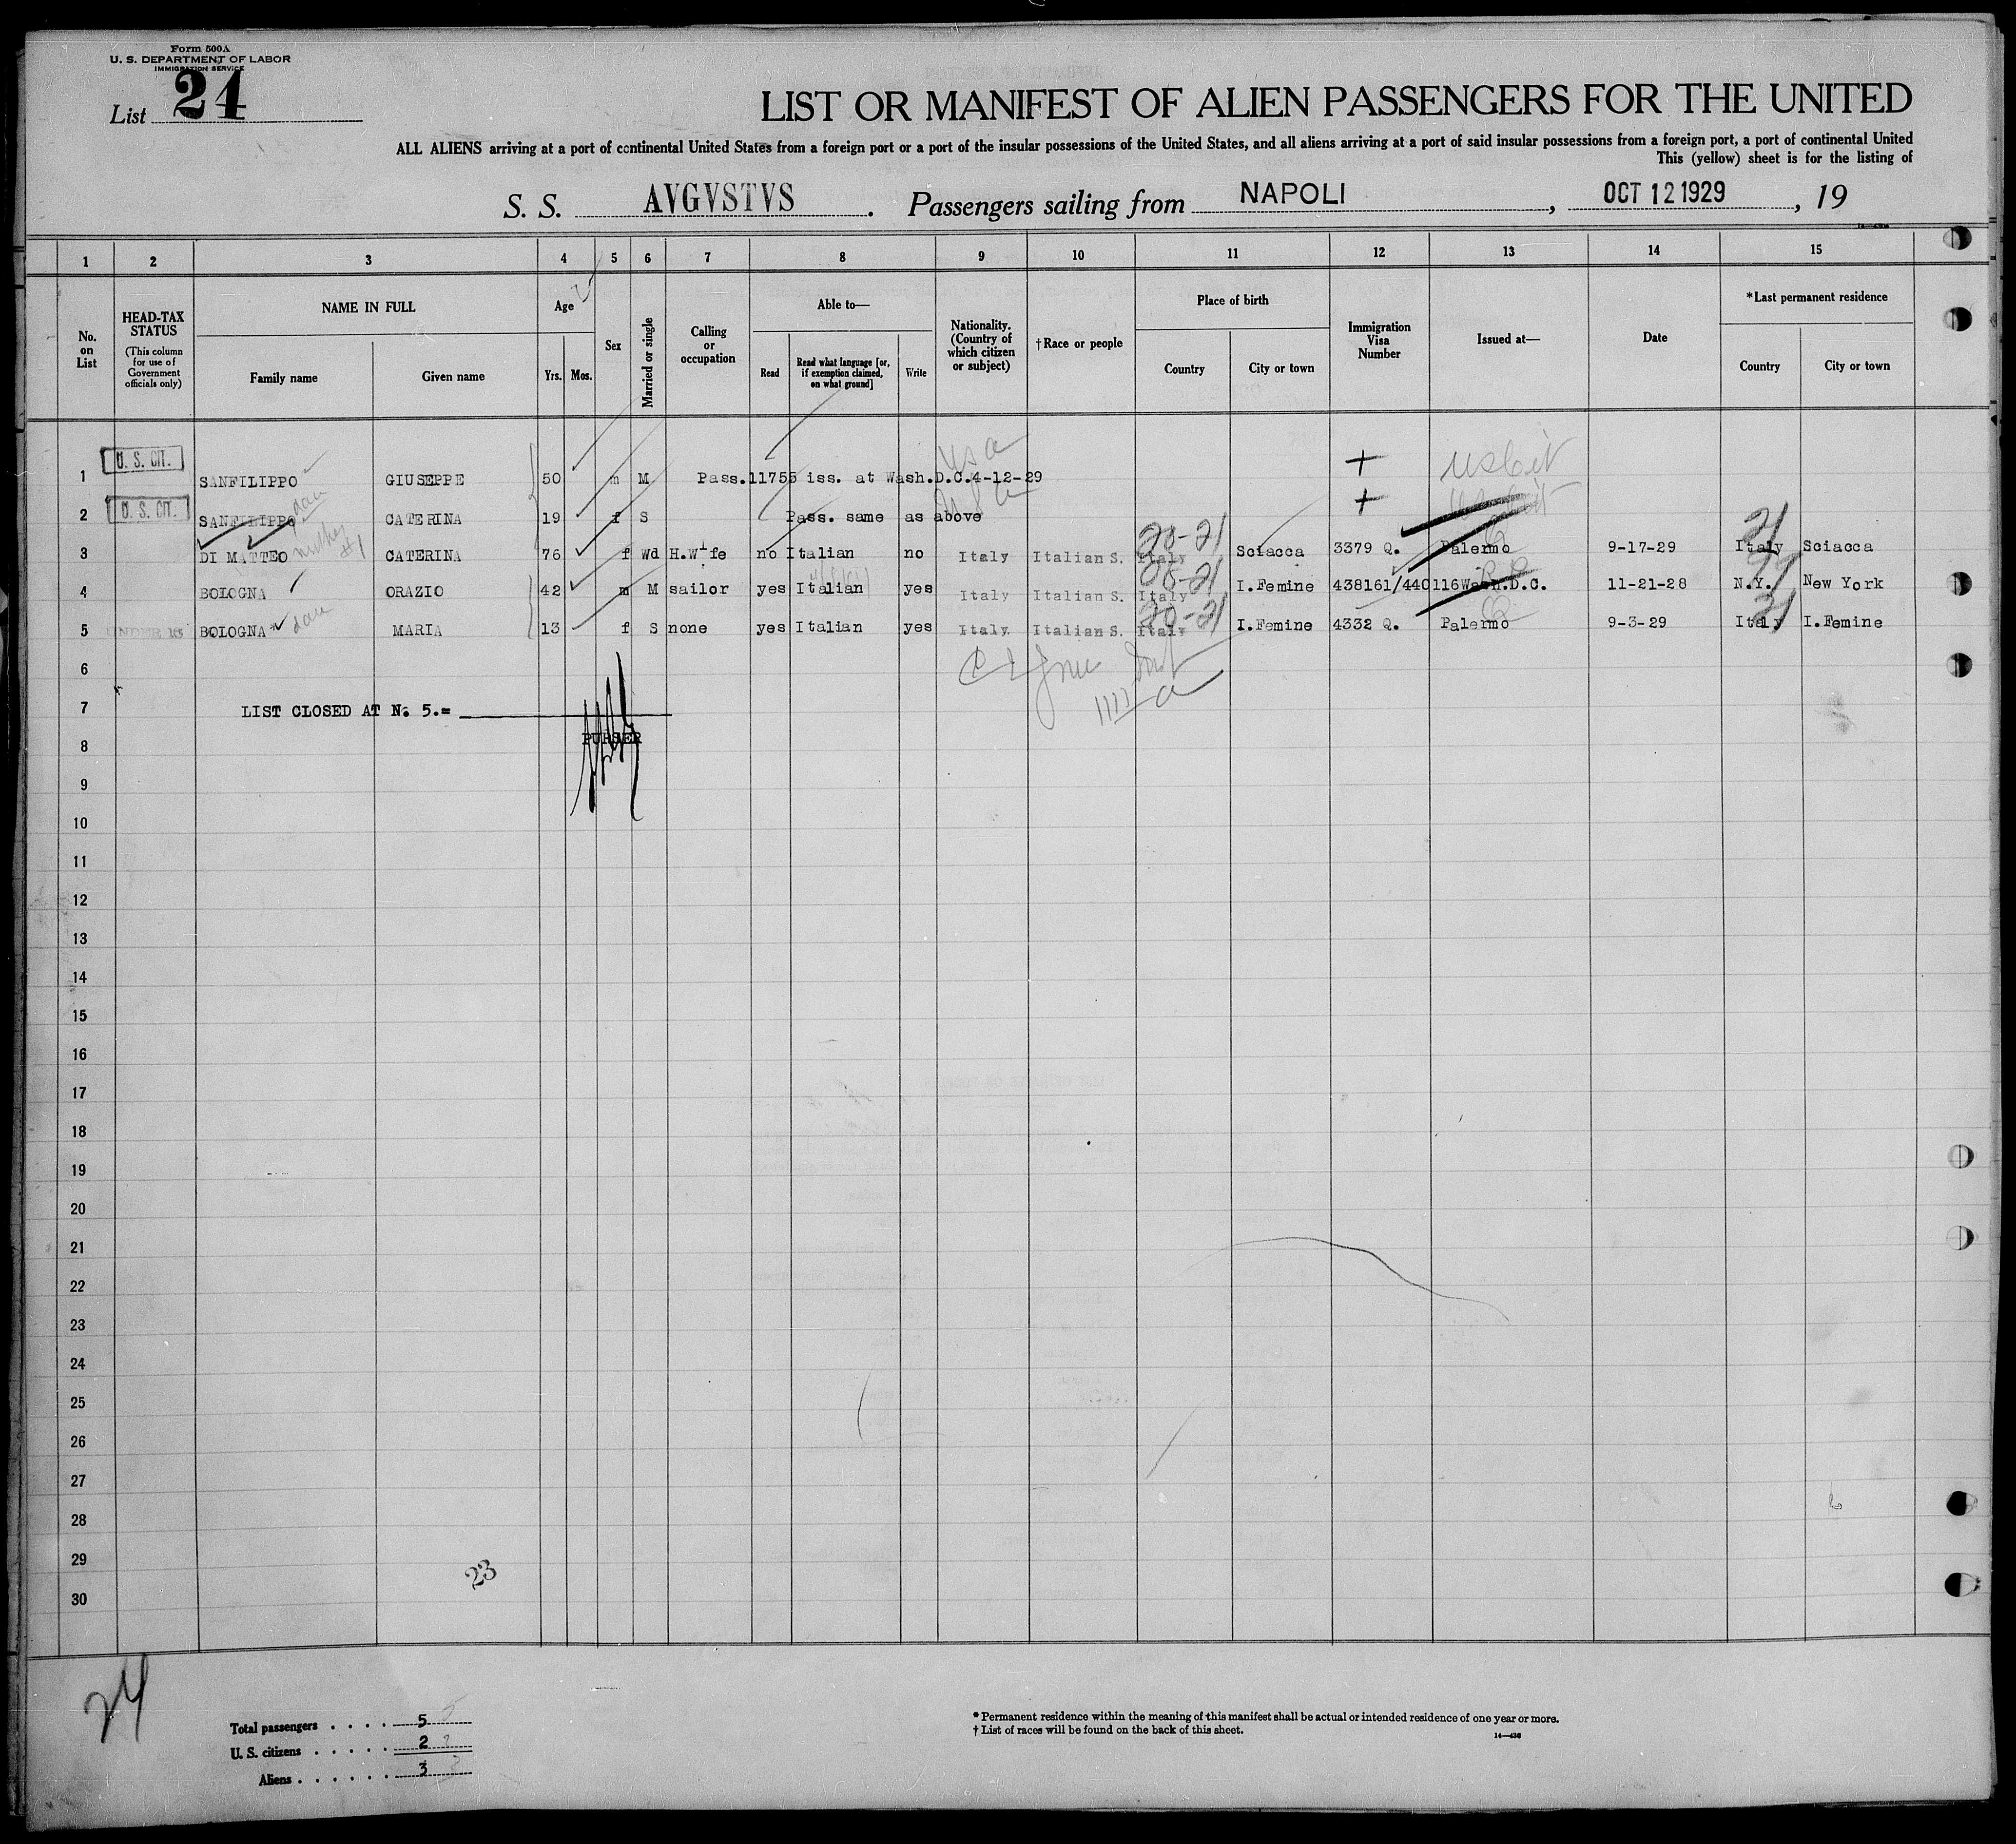 Form 500A
U. S. DEPARTMENT OF LABOR
IMMIGRATION SERVICE
List 24
LIST OR MANIFEST OF ALIEN PASSENGERS FOR THE UNITED
ALL ALIENS arriving at a port of continental United States from a foreign port or a port of the insular possessions of the United States, and all aliens arriving at a port of said insular possessions from a foreign port, a port of continental United
This (yellow) sheet is for the listing of
S. S. AVGVSTVS. Passengers sailing from NAPOLI, OCT 12 1929, 19
1 2 3 4 5 6 7 8 9 10 11 12 13 14 15
No. on List
HEAD-TAX STATUS
(This column for use of Government officials only)
NAME IN FULL
Family name Given name
Age
Yrs. Mos.
Sex
Married or single
Calling or occupation
Able to—
Read
Read what language [or, if exemption claimed, on what ground]
Write
Nationality. (Country of which citizen or subject)
†Race or people
Place of birth
Country City or town
Immigration Visa Number
Issued at—
Date
*Last permanent residence
Country City or town
1 U. S. CIT. SANFILIPPO GIUSEPPE 50 m M Pass.11755 iss. at Wash.D.C.4-12-29 usa + uscit
2 U. S. CIT. SANFILIPPO dau CATERINA 19 f S Pass. same as above usa + uscit
3 DI MATTEO mother #1 CATERINA 76 f Wd H.Wife no Italian no Italy Italian S. Italy 20-21 Sciacca 3379 Q. Palermo 9-17-29 Italy 21 Sciacca
4 BOLOGNA ORAZIO 42 m M sailor yes Italian yes Italy Italian S. Italy 20-21 I.Femine 438161/440116 Wash.D.C. 11-21-28 N.Y. New York
5 UNDER 16 BOLOGNA dau MARIA 13 f S none yes Italian yes Italy Italian S. Italy 20-21 I.Femine 4332 Q. Palermo 9-3-29 Italy 21 I.Femine
6
7 LIST CLOSED AT N. 5.=
PURSER
8
9
10
11
12
13
14
15
16
17
18
19
20
21
22
23
24
25
26
27
28
29
23
30
24
Total passengers . . . . 5 5
U. S. citizens . . . . . 2 2
Aliens . . . . . . 3 3
* Permanent residence within the meaning of this manifest shall be actual or intended residence of one year or more.
† List of races will be found on the back of this sheet.
14—430